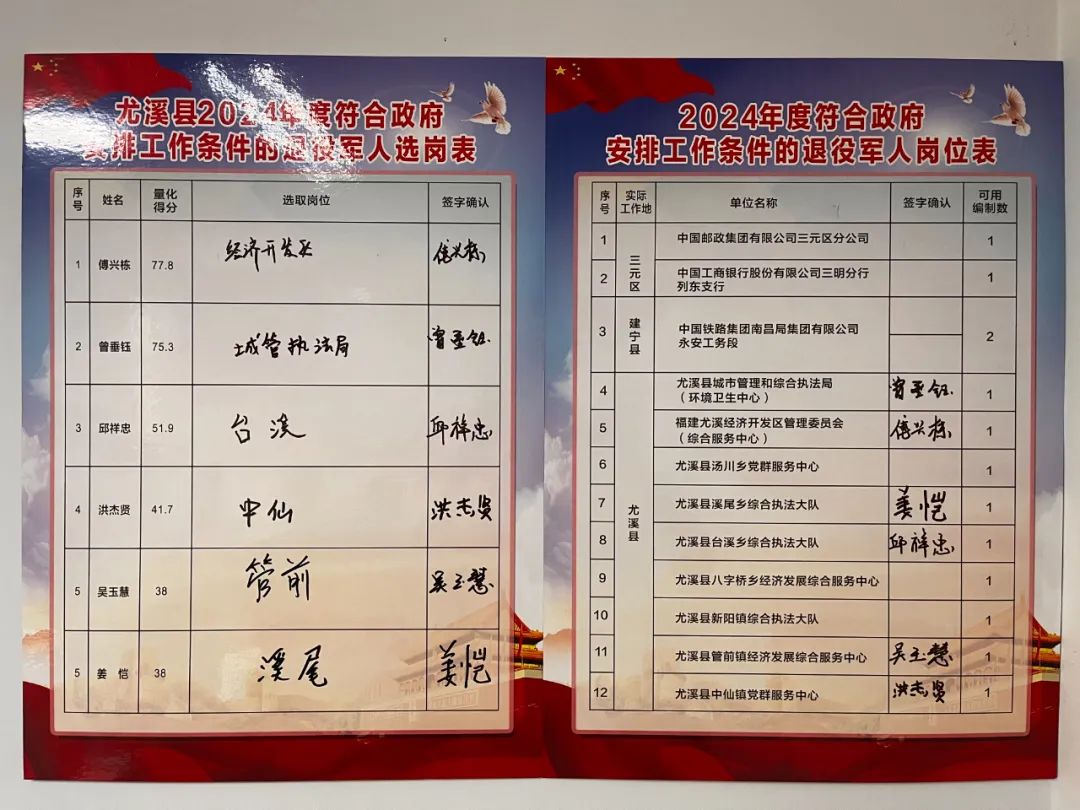 尤溪县2024年度符合政府
安排工作条件的退役军人选岗表
序号 姓名 量化得分 选取岗位 签字确认
1 傅兴栋 77.8 经济开发区 傅兴栋
2 曾垂钰 75.3 城管执法局 曾垂钰
3 邱祥忠 51.9 台溪 邱祥忠
4 洪杰贤 41.7 中仙 洪杰贤
5 吴玉慧 38 管前 吴玉慧
5 姜恺 38 溪尾 姜恺
2024年度符合政府
安排工作条件的退役军人岗位表
序号 实际工作地 单位名称 签字确认 可用编制数
三元区
1 中国邮政集团有限公司三元区分公司 1
2 中国工商银行股份有限公司三明分行
列东支行 1
建宁县
3 中国铁路集团南昌局集团有限公司
永安工务段 2
尤溪县
4 尤溪县城市管理和综合执法局
（环境卫生中心） 曾垂钰 1
5 福建尤溪经济开发区管理委员会
（综合服务中心） 傅兴栋 1
6 尤溪县汤川乡党群服务中心 1
7 尤溪县溪尾乡综合执法大队 姜恺 1
8 尤溪县台溪乡综合执法大队 邱祥忠 1
9 尤溪县八字桥乡经济发展综合服务中心 1
10 尤溪县新阳镇综合执法大队 1
11 尤溪县管前镇经济发展综合服务中心 吴玉慧 1
12 尤溪县中仙镇党群服务中心 洪杰贤 1